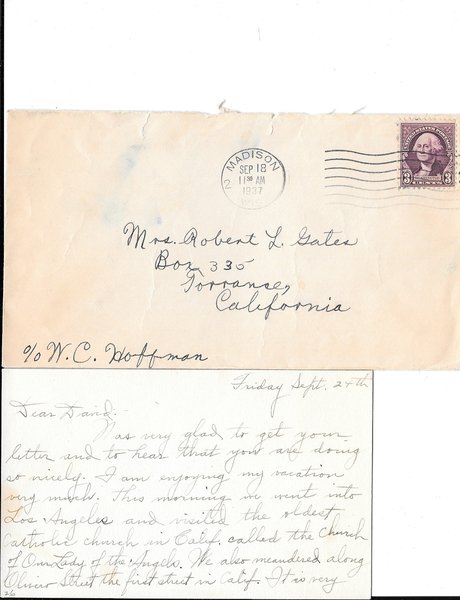 MADISON
SEP 18
11 30 AM
1937
WIS.
2
UNITED STATES POSTAGE
3 3
CENTS
Mrs. Robert L. Gates
Box 335
Torrance,
California
c/o W. C. Hoffman
Friday Sept. 24th
Dear David:-
Was very glad to get your
letter and to hear that you are doing
so nicely. I am enjoying my vacation
very much. This morning we went into
Los Angeles and visited the oldest
Catholic church in Calif. called the Church
of Our Lady of the Angels. We also meandired along
Olivio Street the first street in Calif. It is very
26